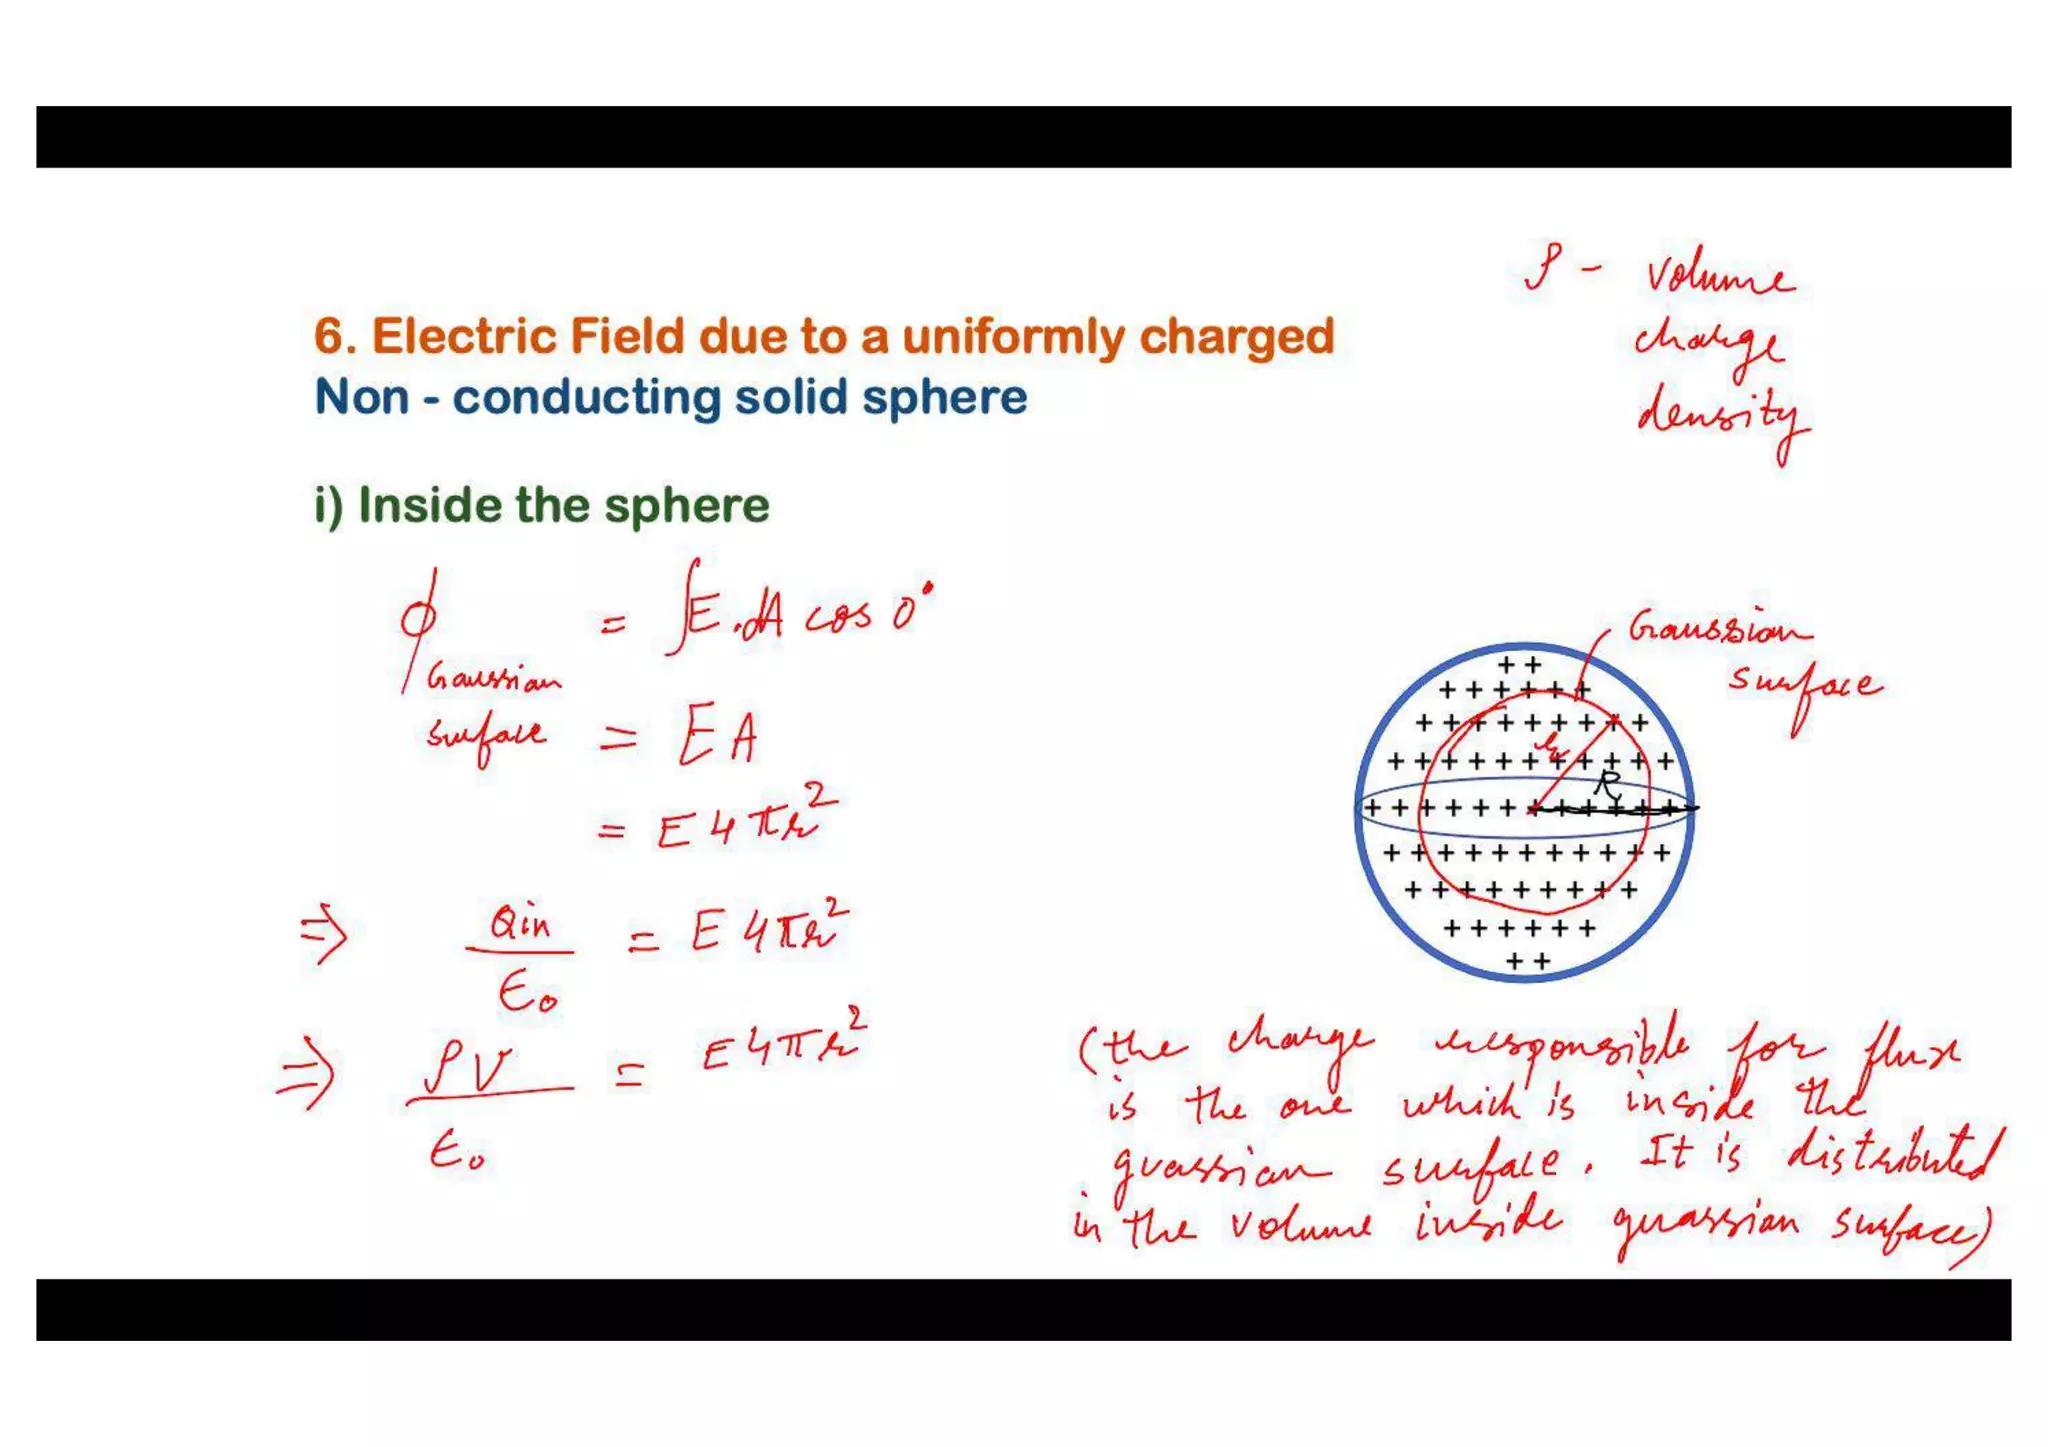 ρ - volume
charge
density
6. Electric Field due to a uniformly charged
Non - conducting solid sphere
i) Inside the sphere
ϕ Gaussian surface = ∫E.dA cos 0°
= EA
= E4πr²
⇒ Qin/ϵ₀ = E4πr²
⇒ ρV/ϵ₀ = E4πr²
Gaussian
surface
+ +
+ + + + + +
+ + + + + + + + +
r
+ + + + + + + + + + +
R
+ + + + + + + + + + + +
+ + + + + + + + + + +
+ + + + + + + + +
+ + + + + +
+ +
(the charge responsible for flux
is the one which is inside the
guassian surface. It is distributed
in the volume inside guassian surface)